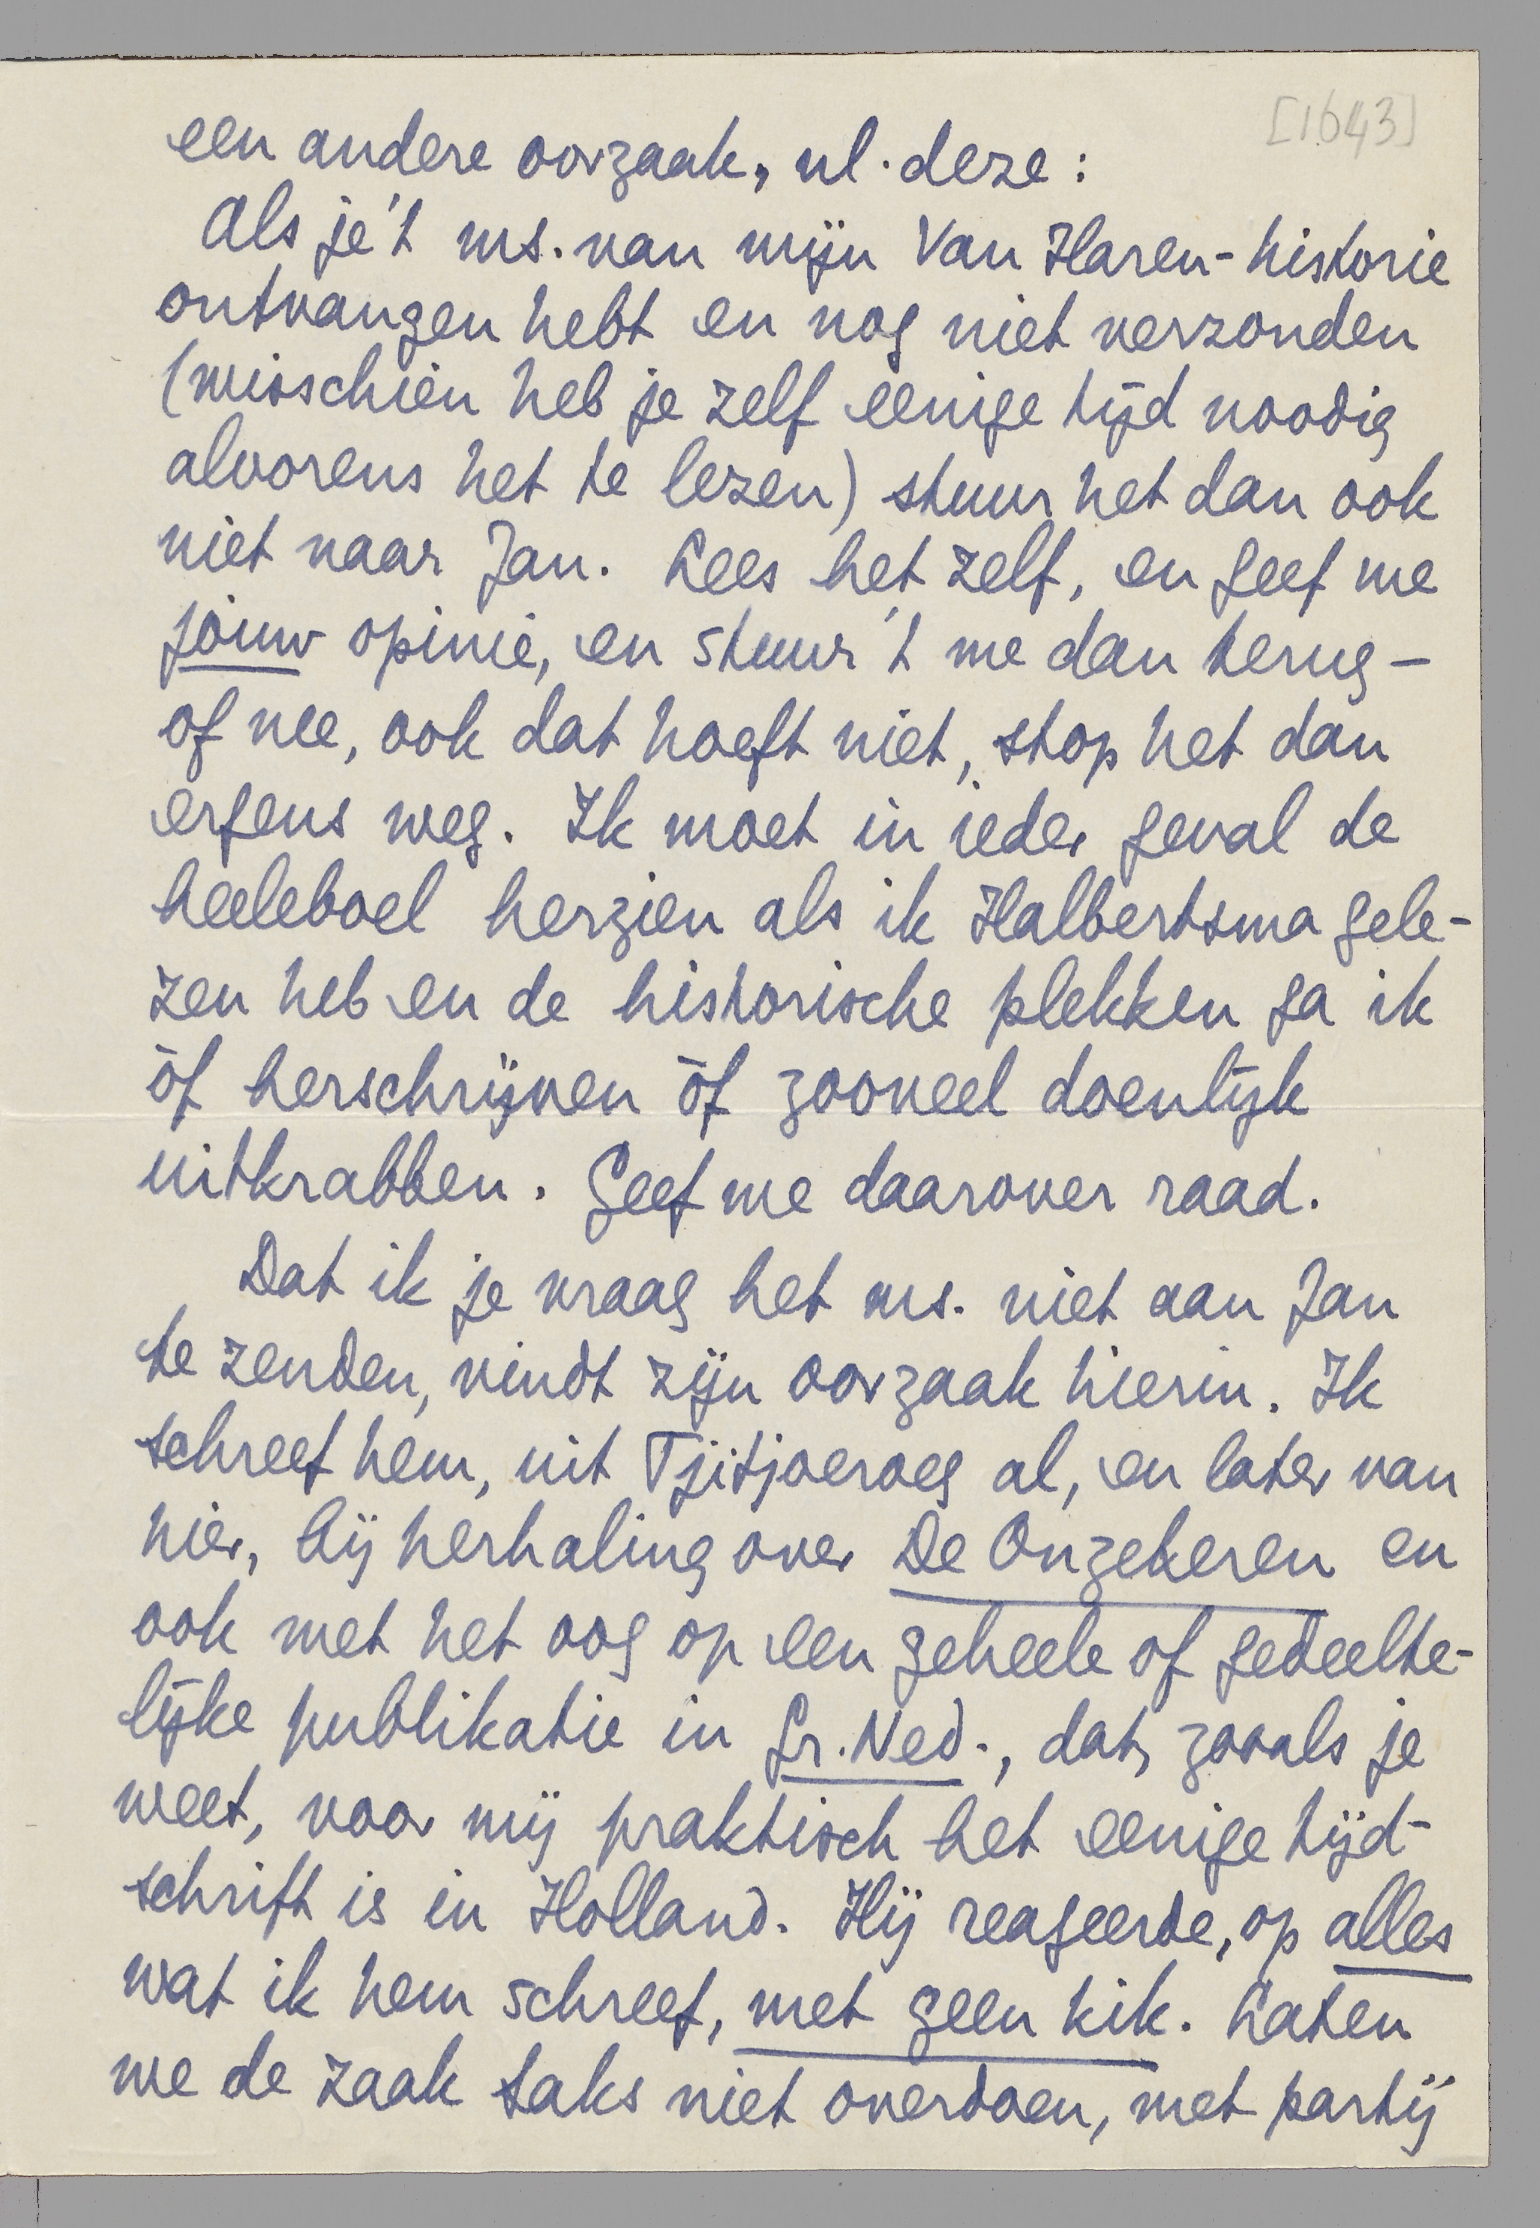 [1643]
een andere oorzaak, nl. deze:
Als je 't ms. van mijn Van Haren-historie
ontvangen hebt en nog niet verzonden
(misschien heb je zelf eenige tijd noodig
alvorens het te lezen) stuur het dan ook
niet naar Jan. Lees het zelf, en geef me
jouw opinie, en stuur 't me dan terug —
of nee, ook dat hoeft niet, stop het dan
ergens weg. Ik moet in ieder geval de
heeleboel herzien als ik Halbertsma gele-
zen heb en de historische plekken ga ik
òf herschrijven òf zooveel doenlijk
uitkrabben. Geef me daarover raad.
Dat ik je vraag het ms. niet aan Jan
te zenden, vindt zijn oorzaak hierin. Ik
schreef hem, uit Tjitjoeroeg al, en later van
hier, bij herhaling over De Onzekeren en
ook met het oog op een geheele of gedeelte-
lijke publikatie in Gr. Ned., dat, zooals je
weet, voor mij praktisch het eenige tijd-
schrift is in Holland. Hij reageerde, op alles
wat ik hem schreef, met geen kik. Laten
we de zaak Saks niet overdoen, met partij